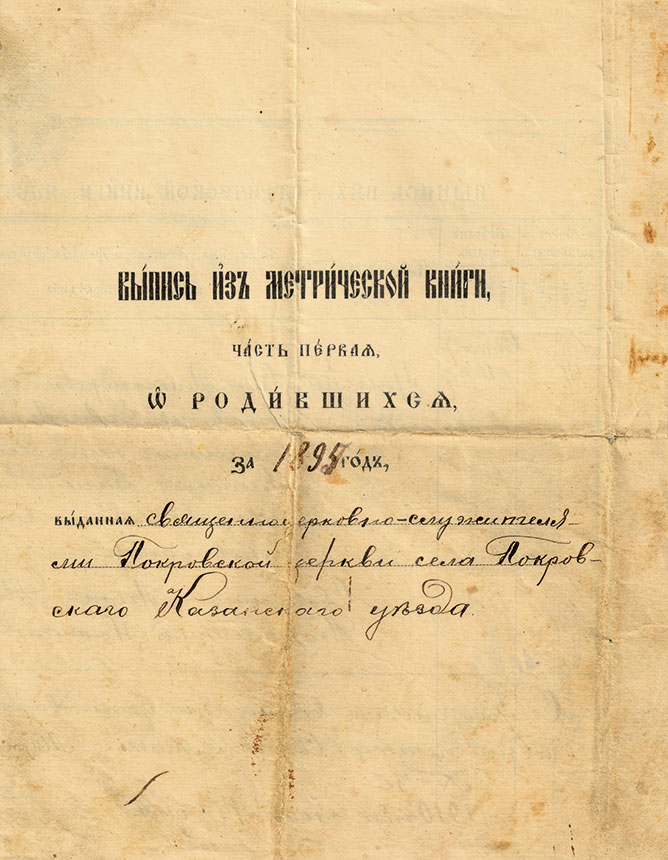 Вы́пись и҆зъ метри́ческой кни́ги,
ча́сть пе́рвая,
ѽ роди́вшихсѧ,
за 1895 го́дъ,
вы́данная священноцерковно-служителя-
ми Покровской церкви села Покров-
скаго Казанскаго уѣзда.